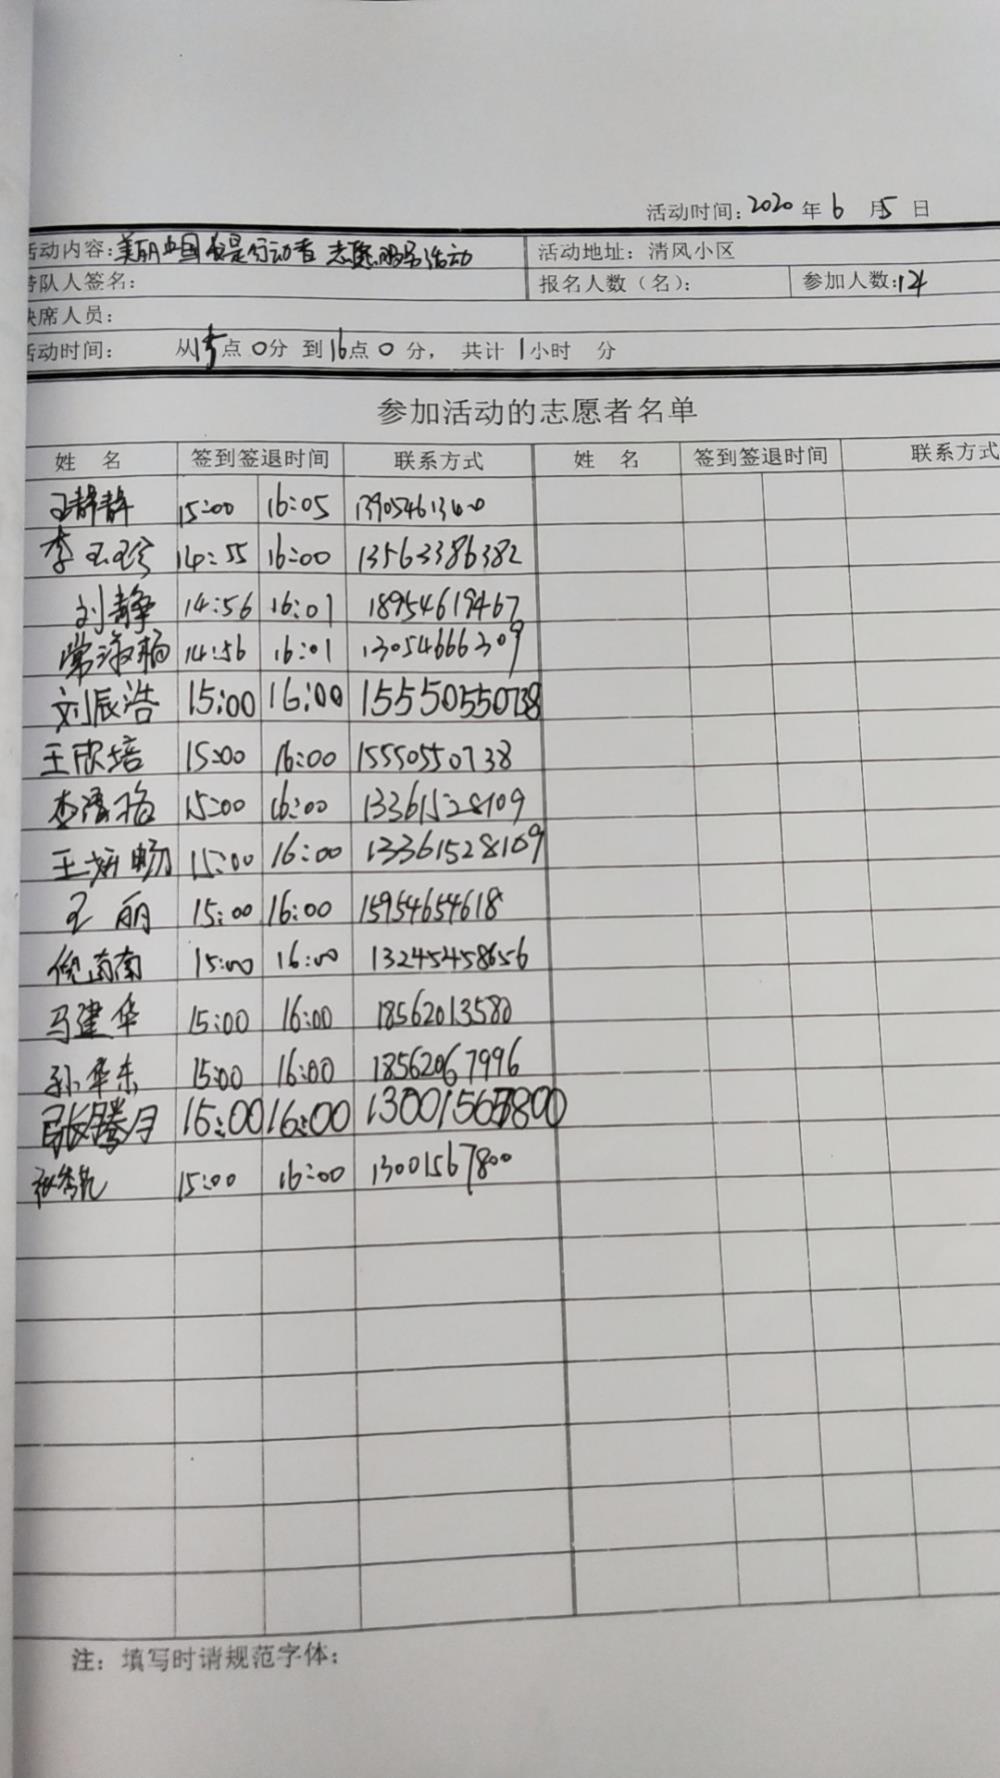 活动时间:2020年6月5日
活动内容:美丽中国我是行动者 志愿服务活动 活动地址:清风小区
带队人签名: 报名人数(名): 参加人数:14
缺席人员:
活动时间: 从15点0分 到16点0分, 共计1小时 分
参加活动的志愿者名单
姓 名 签到签退时间 联系方式 姓 名 签到签退时间 联系方式
王静静 15:00 16:05
李玉珍 14:55 16:00 13563386382
刘静 14:56 16:01 18954619467
常淑梅 14:56 16:01 13054666309
刘辰浩 15:00 16:00 15550550738
王欣培 15:00 16:00 15550550738
15:00 16:00 13361528109
王 畅 15:00 16:00 13361528109
王丽 15:00 16:00 15954654618
倪南南 15:00 16:00 13245458656
马建华 15:00 16:00 18562013580
孙华东 15:00 16:00 18562067996
张腾月 15:00 16:00 13001567800
15:00 16:00 13001567800
注:填写时请规范字体: